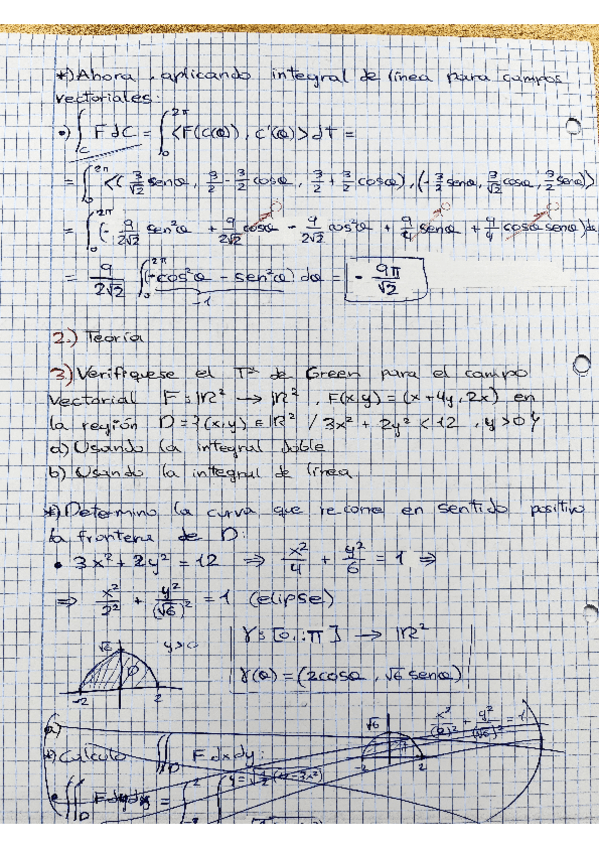 *) Ahora, aplicando integral de línea para campos
vectoriales:
•) ∫_C F dC = ∫_0^{2π} <F(c(θ)), c'(θ)> dt =
= ∫_0^{2π} <(3/√2 senθ, 3/2 - 3/2 cosθ, 3/2 + 3/2 cosθ), (-3/2 senθ, 3/√2 cosθ, 3/2 senθ)>
= ∫_0^{2π} (- 9/2√2 sen²θ + 9/2√2 cosθ - 9/2√2 cos²θ + 9/4 senθ + 9/4 cosθ senθ) dθ
= 9/2√2 ∫_0^{2π} (-cos²θ - sen²θ) dθ = - 9π/√2
-1
2.) Teoría
3) Verifíquese el Tª de Green para el campo
vectorial F: ℝ² → ℝ², F(x,y) = (x+4y, 2x) en
la región D = {(x,y) ∈ ℝ² / 3x² + 2y² < 12, y>0}
a) Usando la integral doble
b) Usando la integral de línea
*) Determino la curva que recorre en sentido positivo
la frontera de D:
• 3x² + 2y² = 12 ⇒ x²/4 + y²/6 = 1 ⇒
⇒ x²/2² + y²/(√6)² = 1 (elipse)
√6 y>0
-2 2
γ: [0, π] → ℝ²
γ(θ) = (2cosθ, √6 senθ)
a)
*) Calculo ∬_D F dxdy:
√6 x²/(2)² + y²/(√6)² = 1
-2 2